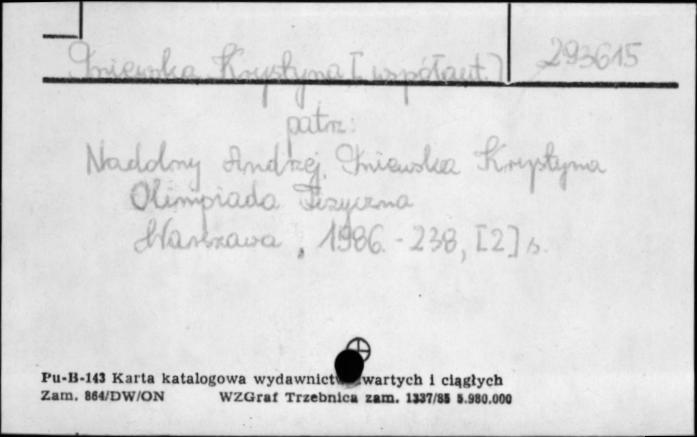 Gniewska Krystyna [współaut.] 293615
patrz:
Nadolny Andrzej, Gniewska Krystyna
Olimpiada Fizyczna
Warszawa, 1986. - 238, [2] s.
Pu-B-143 Karta katalogowa wydawnictw zwartych i ciągłych
Zam. 864/DW/ON WZGraf Trzebnica zam. 1337/85 5.980.000